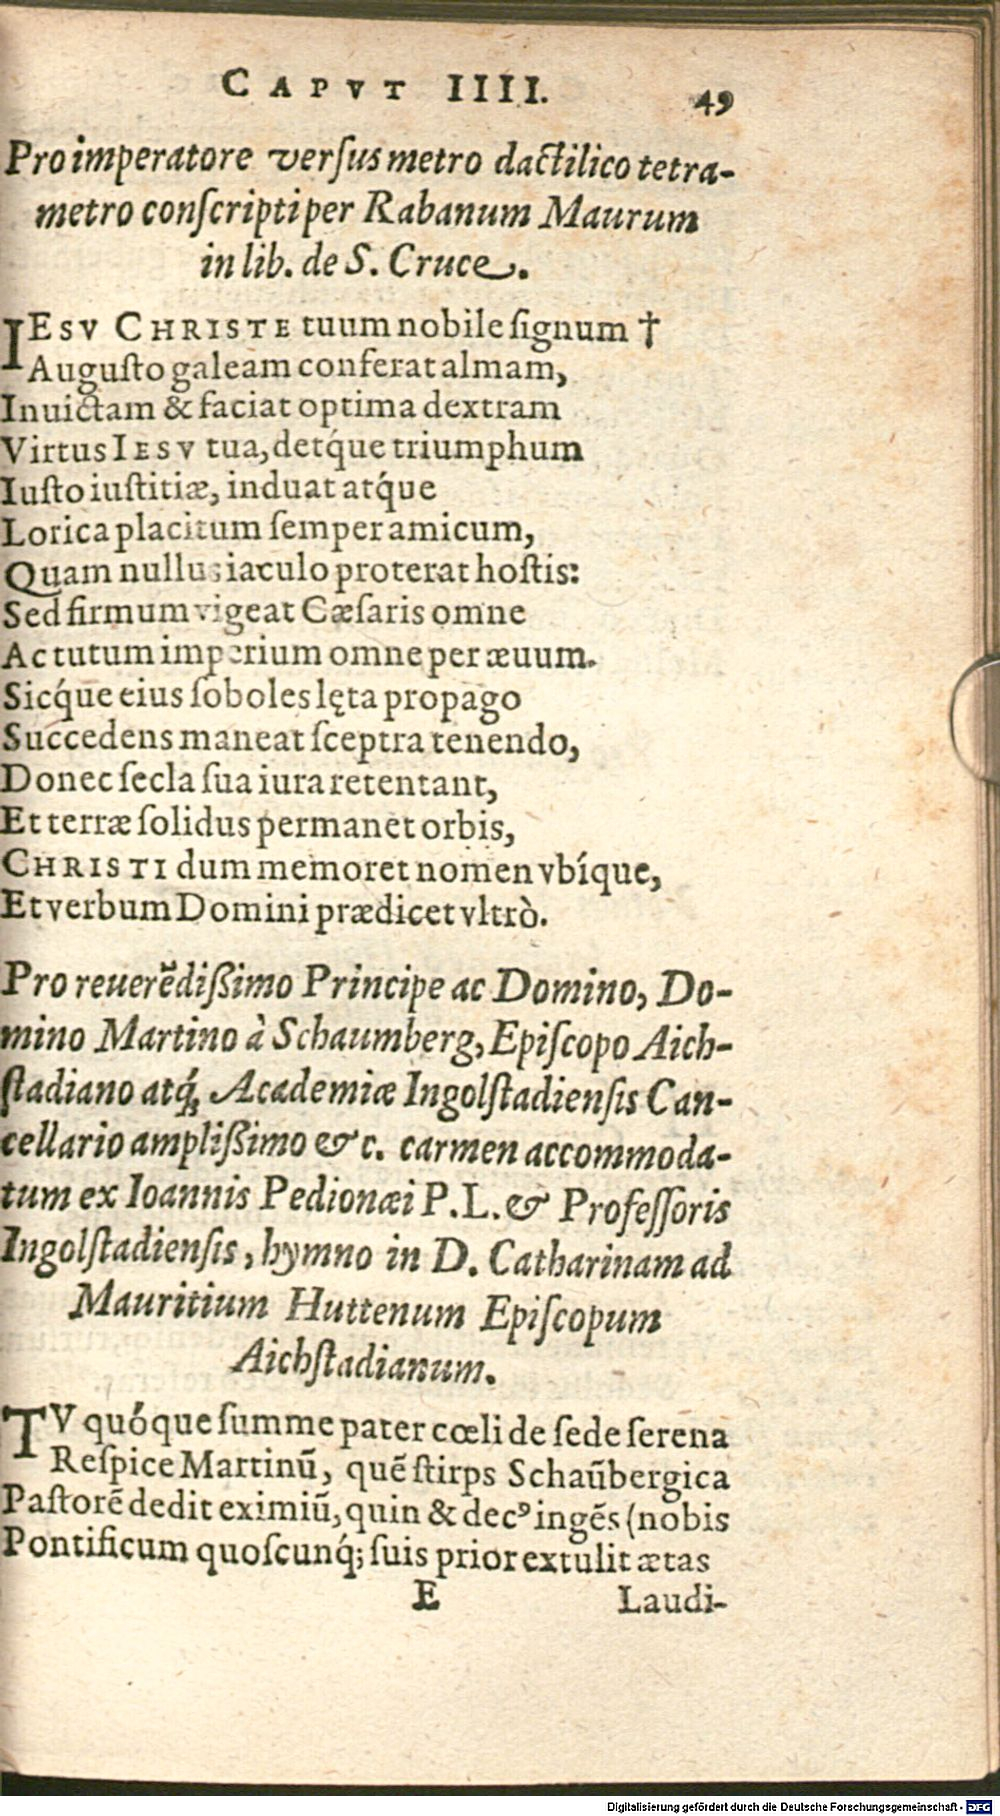 CAPVT IIII. 49
Pro imperatore versus metro dactilico tetra-
metro conscripti per Rabanum Maurum
in lib. de S. Cruce.
IESV CHRISTE tuum nobile signum †
Augusto galeam conferat almam,
Inuictam & faciat optima dextram
Virtus IESV tua, detq́ue triumphum
Iusto iustitiæ, induat atq́ue
Lorica placitum semper amicum,
Quam nullus iaculo proterat hostis:
Sed firmum vigeat Cæsaris omne
Ac tutum imperium omne per æuum.
Sicq́ue eius soboles lęta propago
Succedens maneat sceptra tenendo,
Donec secla sua iura retentant,
Et terræ solidus permanet orbis,
CHRISTI dum memoret nomen vbíque,
Et verbum Domini prædicet vltrò.
Pro reuerẽdißimo Principe ac Domino, Do-
mino Martino à Schaumberg, Episcopo Aich-
stadiano atq́; Academiæ Ingolstadiensis Can-
cellario amplißimo &c. carmen accommoda-
tum ex Ioannis Pedionæi P.L. & Professoris
Ingolstadiensis, hymno in D. Catharinam ad
Mauritium Huttenum Episcopum
Aichstadianum.
TV quóque summe pater cœli de sede serena
Respice Martinũ, quẽ stirps Schaũbergica
Pastorẽ dedit eximiũ, quin & decꝰ ingẽs (nobis
Pontificum quoscunq́; suis prior extulit ætas
E Laudi-
Digitalisierung gefördert durch die Deutsche Forschungsgemeinschaft - DFG